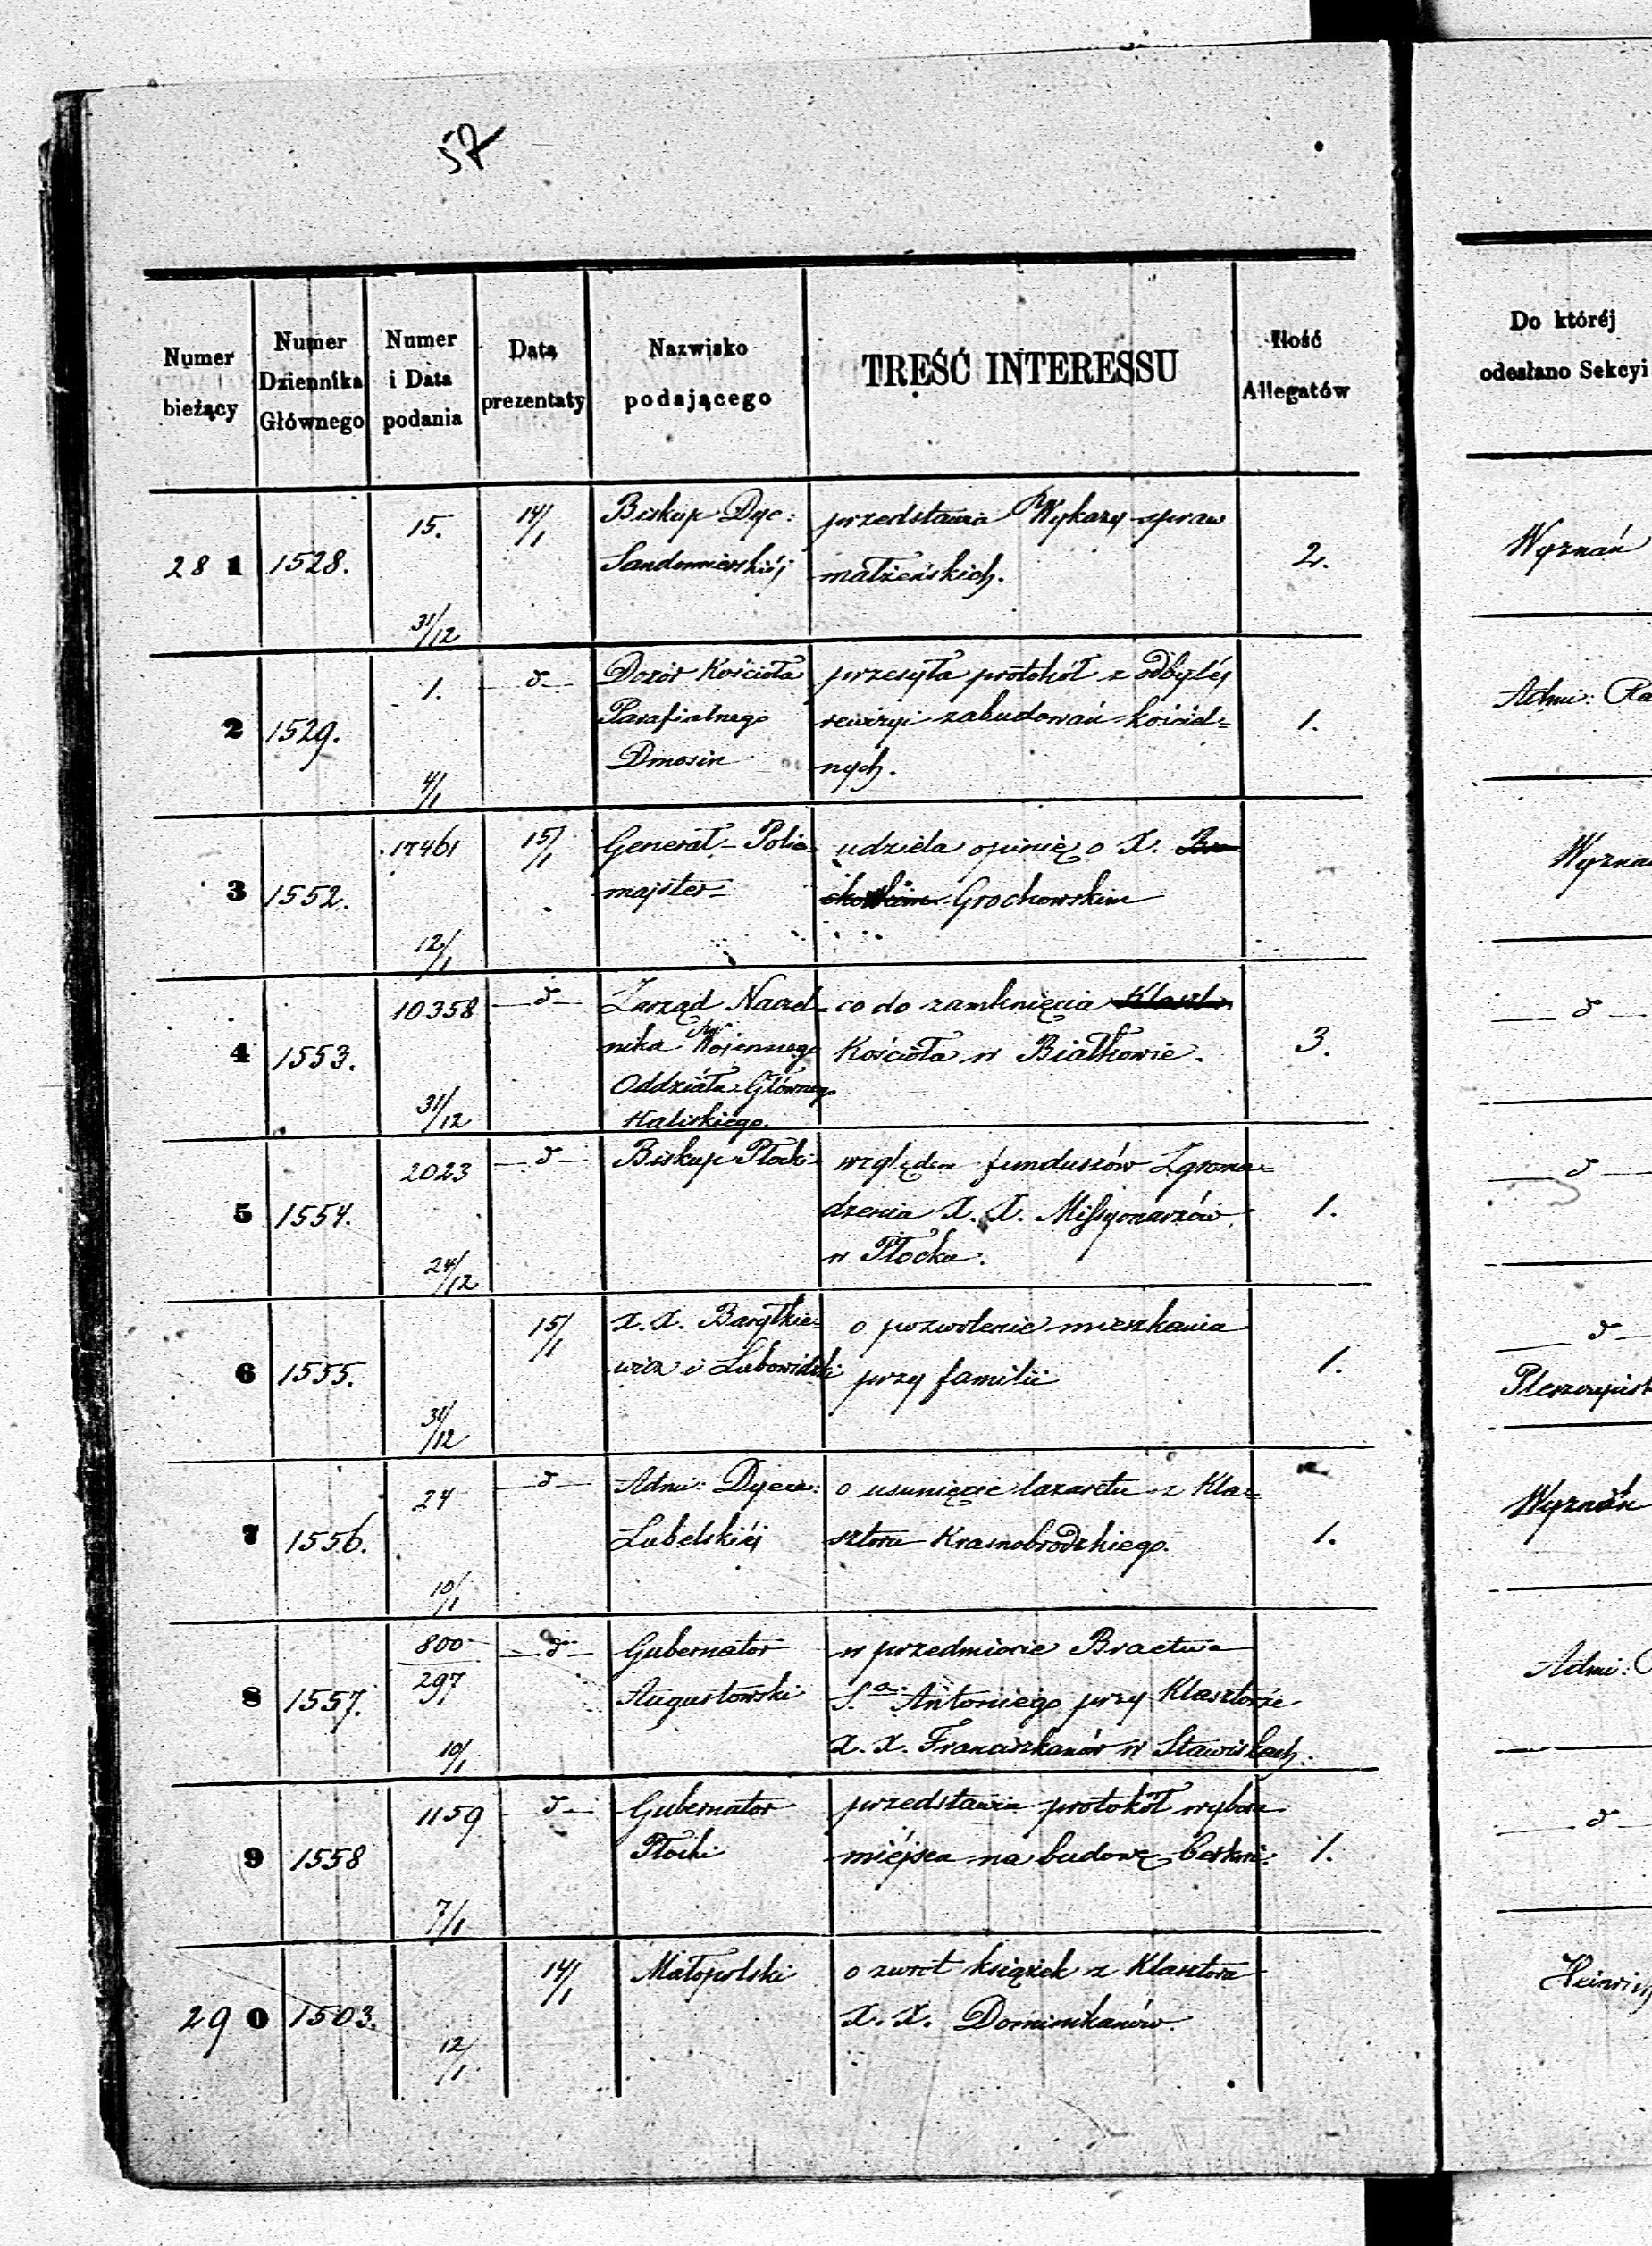 57
Numer bieżący | Numer Dziennika Głównego | Numer i Data podania | Data prezentaty | Nazwisko podającego | TREŚĆ INTERESSU | Ilość Allegatów | Do któréj odesłano Sekcyi
281 | 1528. | 15. 31/12 | 14/1 | Biskup Dye: | przedstawia Wykazy spraw | 2. | Wyznań
Sandomierskiéj | małżeńskich.
2 | 1529. | 1. 4/1 | d | Dozór Kościoła | przesyła protokół z odbytéj | 1. | Adm: Ra
Parafialnego | rewizyi zabudowań kościel=
Dmosin | nych.
3 | 1552. | 17461 12/1 | 15/1 | Generał-Polic= | udziela opinię o X. | Wyzna
majster | Grochowskim
4 | 1553. | 10358 31/12 | d | Zarząd Naczel= | co do zamknięcia Klasztor | 3. | d
nika Wojennego | Kościoła w Białkowie.
Oddziału Główneg
Kaliskiego.
5 | 1554. | 2023 24/12 | d | Biskup Płocki | względem funduszów Zgroma= | 1. | d
dzenia X. X. Missyonarzów
w Płocku.
6 | 1555. | 31/12 | 15/1 | X. X. Barytkie= | o pozwolenie mieszkania | 1. | d
wicz i Lubowidzki | przy familii
7 | 1556. | 24 10/1 | d | Adm: Dyece: | o usunięcie lazaretu z Kla= | 1. | Wyznań
Lubelskiéj | sztoru Krasnobrodzkiego.
8 | 1557. | 800 297 10/1 | d | Gubernator | w przedmiocie Bractwa | Adm:
Augustowski | S.a Antoniego przy Klasztorze
X. X. Franciszkanów w Stawiskach.
9 | 1558 | 1159 7/1 | d | Gubernator | przedstawia protokół wyboru | 1. | d
Płocki | miéjsca na budowę Cerkwi.
290 | 1503. | 12/1 | 14/1 | Małopolski | o zwrot książek z Klasztoru | Heinrich
X. X. Dominikanów.